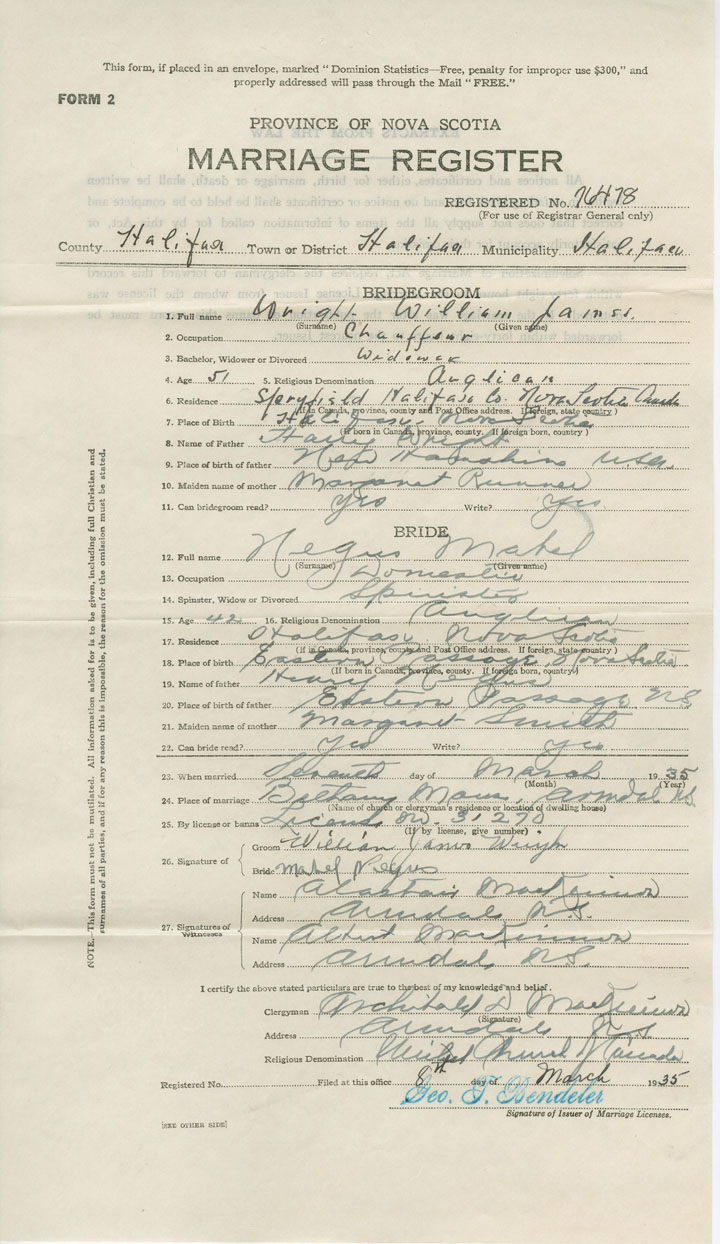 This form, if placed in an envelope, marked "Dominion Statistics—Free, penalty for improper use $300," and
properly addressed will pass through the Mail "FREE."
FORM 2
PROVINCE OF NOVA SCOTIA
MARRIAGE REGISTER
REGISTERED No. 76478
(For use of Registrar General only)
County Halifax Town or District Halifax Municipality Halifax
BRIDEGROOM
1. Full name Wright William James.
(Surname) (Given name)
2. Occupation Chauffeur
3. Bachelor, Widower or Divorced Widower
4. Age 51 5. Religious Denomination Anglican
6. Residence Spryfield Halifax Co. Nova Scotia Canada
(If in Canada, province, county and Post Office address. If foreign, state country)
7. Place of Birth Halifax, Nova Scotia
(If born in Canada, province, county. If foreign born, country)
8. Name of Father Harry Wright
9. Place of birth of father New Hampshire U.S.A.
10. Maiden name of mother Margaret
11. Can bridegroom read? Yes Write? Yes
BRIDE
12. Full name Negus Mabel
(Surname) (Given name)
13. Occupation Domestic
14. Spinster, Widow or Divorced Spinster
15. Age 42 16. Religious Denomination Anglican
17. Residence Halifax Nova Scotia
(If in Canada, province, county and Post Office address. If foreign, state country)
18. Place of birth Eastern Passage Nova Scotia
(If born in Canada, province, county. If foreign born, country)
19. Name of father Henry Negus
20. Place of birth of father Eastern Passage, N.S.
21. Maiden name of mother Margaret Smith
22. Can bride read? Yes Write? Yes
23. When married Seventh day of March 1935
(Month) (Year)
24. Place of marriage Bethany Manse, Armdale N.S.
(Name of church or clergyman's residence or location of dwelling house)
25. By license or banns License No. 31270
(If by license, give number)
26. Signature of
Groom William James Wright
Bride Mabel Negus
27. Signatures of Witnesses
Name Alastair MacKinnon
Address Armdale N.S.
Name Albert MacKinnon
Address Armdale N.S.
I certify the above stated particulars are true to the best of my knowledge and belief.
Clergyman Archibald D MacKinnon
(Signature)
Address Armdale N.S.
Religious Denomination United Church of Canada
Registered No. Filed at this office 8th day of March 1935
Geo. F. Bendeler
Signature of Issuer of Marriage Licenses.
[SEE OTHER SIDE]
NOTE.—This form must not be mutilated. All information asked for is to be given, including full Christian and
surnames of all parties, and if for any reason this is impossible, the reason for the omission must be stated.